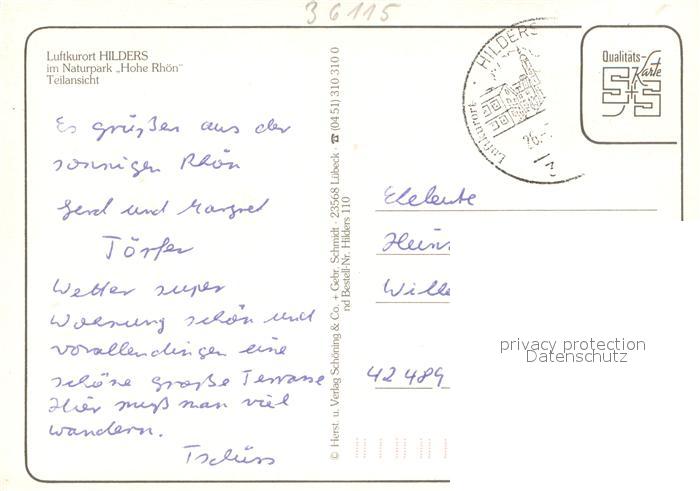 36115
Luftkurort HILDERS
im Naturpark „Hohe Rhön"
Teilansicht
Es grüßen aus der
sonnigen Rhön
Gerd und Margret
Törfer
Wetter super
Wohnung schön und
vorallendingen eine
schöne große Terrasse
Hier muß man viel
wandern.
Tschüss
© Herst. u. Verlag Schöning & Co. + Gebr. Schmidt · 23568 Lübeck · ☎ (04 51) 310 310 0
nd Bestell-Nr. Hilders 110
HILDERS
Luftkurort
26.-
Qualitäts-
Karte
S+S
Eheleute
Hein
Wille
42489
privacy protection
Datenschutz